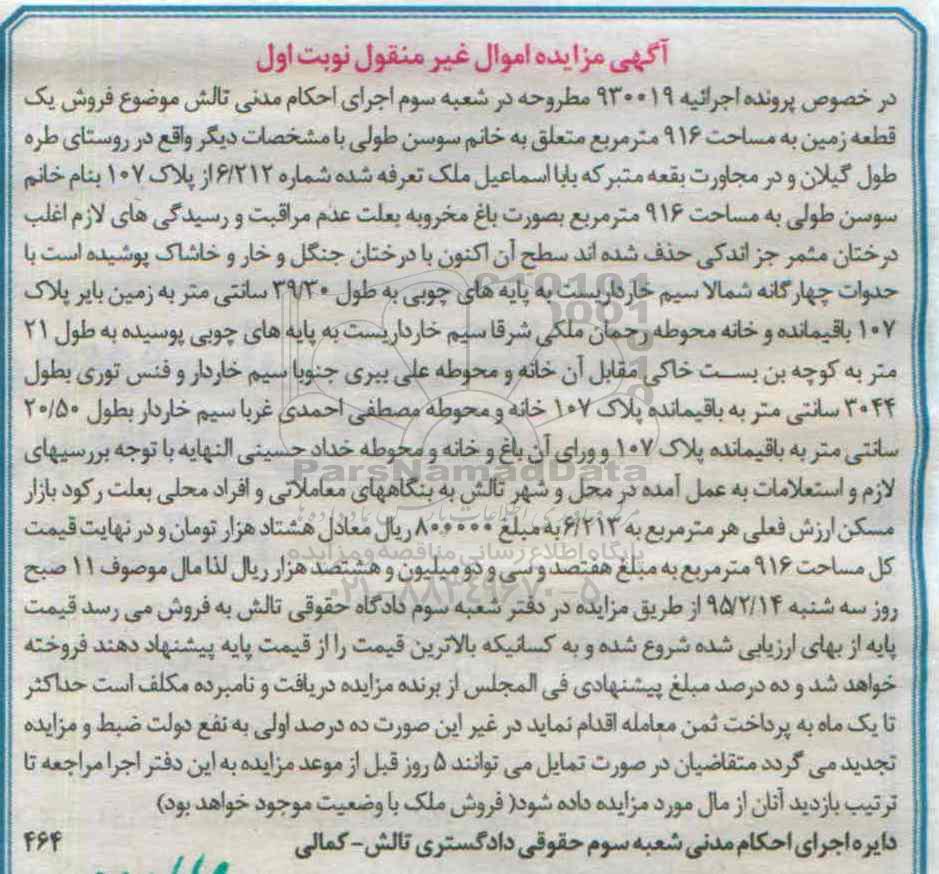 آگهی مزایده اموال غیر منقول نوبت اول
در خصوص پرونده اجرائیه ۹۳۰۰۱۹ مطروحه در شعبه سوم اجرای احکام مدنی تالش موضوع فروش یک
قطعه زمین به مساحت ۹۱۶ مترمربع متعلق به خانم سوسن طولی با مشخصات دیگر واقع در روستای طره
طول گیلان و در مجاورت بقعه متبرکه بابا اسماعیل ملک تعرفه شده شماره ۶/۲۱۲ از پلاک ۱۰۷ بنام خانم
سوسن طولی به مساحت ۹۱۶ مترمربع بصورت باغ مخروبه بعلت عدم مراقبت و رسیدگی های لازم اغلب
درختان مثمر جز اندکی حذف شده اند سطح آن اکنون با درختان جنگل و خار و خاشاک پوشیده است با
حدوات چهارگانه شمالا سیم خارداریست به پایه های چوبی به طول ۳۹/۳۰ سانتی متر به زمین بایر پلاک
۱۰۷ باقیمانده و خانه محوطه رحمان ملکی شرقا سیم خارداریست به پایه های چوبی پوسیده به طول ۲۱
متر به کوچه بن بست خاکی مقابل آن خانه و محوطه علی ببری جنوبا سیم خاردار و فنس توری بطول
۳۰۴۴ سانتی متر به باقیمانده پلاک ۱۰۷ خانه و محوطه مصطفی احمدی غربا سیم خاردار بطول ۲۰/۵۰
سانتی متر به باقیمانده پلاک ۱۰۷ و ورای آن باغ و خانه و محوطه خداد حسینی النهایه با توجه بررسیهای
لازم و استعلامات به عمل آمده در محل و شهر تالش به بنگاههای معاملاتی و افراد محلی بعلت رکود بازار
مسکن ارزش فعلی هر مترمربع به ۶/۲۱۳ به مبلغ ۸۰۰۰۰۰ ریال معادل هشتاد هزار تومان و در نهایت قیمت
کل مساحت ۹۱۶ مترمربع به مبلغ هفتصد و سی و دو میلیون و هشتصد هزار ریال لذا مال موصوف ۱۱ صبح
روز سه شنبه ۹۵/۲/۱۴ از طریق مزایده در دفتر شعبه سوم دادگاه حقوقی تالش به فروش می رسد قیمت
پایه از بهای ارزیابی شده شروع شده و به کسانیکه بالاترین قیمت را از قیمت پایه پیشنهاد دهند فروخته
خواهد شد و ده درصد مبلغ پیشنهادی فی المجلس از برنده مزایده دریافت و نامبرده مکلف است حداکثر
تا یک ماه به پرداخت ثمن معامله اقدام نماید در غیر این صورت ده درصد اولی به نفع دولت ضبط و مزایده
تجدید می گردد متقاضیان در صورت تمایل می توانند ۵ روز قبل از موعد مزایده به این دفتر اجرا مراجعه تا
ترتیب بازدید آنان از مال مورد مزایده داده شود( فروش ملک با وضعیت موجود خواهد بود)
دایره اجرای احکام مدنی شعبه سوم حقوقی دادگستری تالش- کمالی ۴۶۴
ParsNamadData
پایگاه اطلاع رسانی مناقصه و مزایده
۰۲۱-۸۸۳۴۹۶۷۰-۵